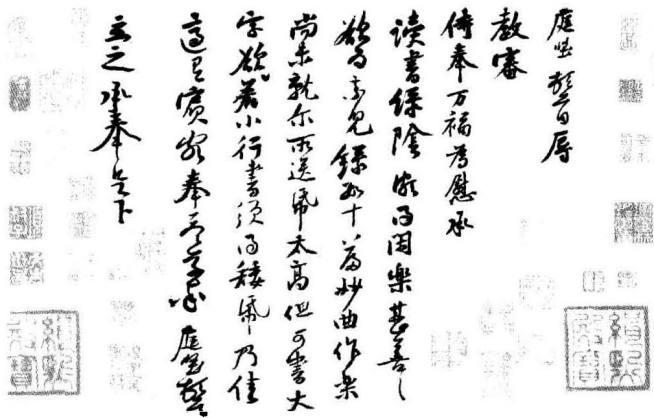 庭堅頓首辱
教審
侍奉万福為慰承
讀書綠陰頗得閑樂甚善〻
欲為索兒錄數十篇妙曲作樂
尚未就尔所送紙太高但可書大
字欲著小行書須得矮紙乃佳
適有賓客奉答草率庭堅頓首
立之承奉足下